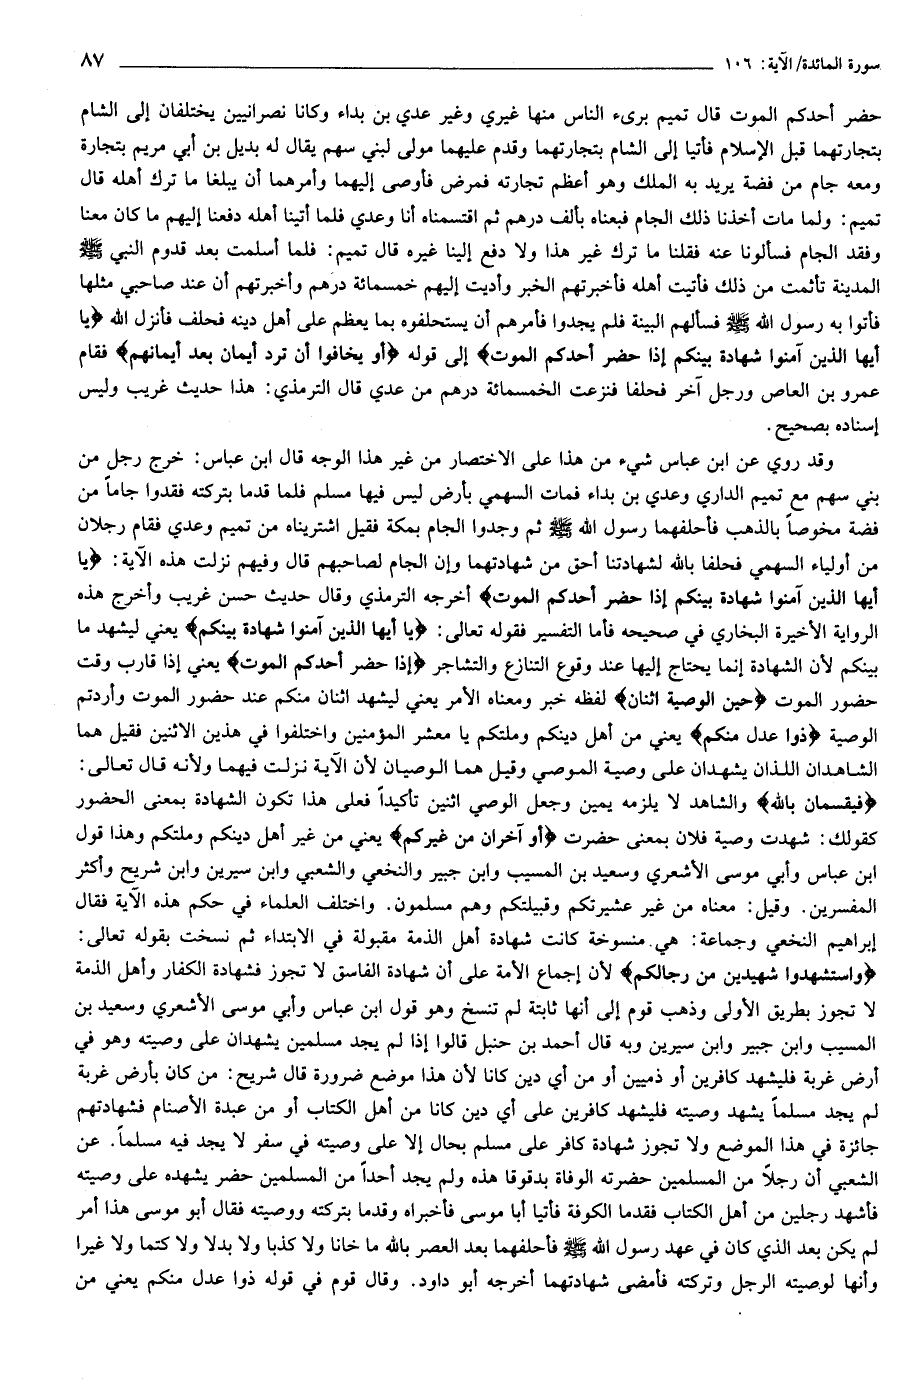 سورة المائدة/ الآية: ١٠٦ ٨٧
حضر أحدكم الموت قال تميم برىء الناس منها غيري وغير عدي بن بداء وكانا نصرانيين يختلفان إلى الشام
بتجارتهما قبل الإسلام فأتيا إلى الشام بتجارتهما وقدم عليهما مولى لبني سهم يقال له بديل بن أبي مريم بتجارة
ومعه جام من فضة يريد به الملك وهو أعظم تجارته فمرض فأوصى إليهما وأمرهما أن يبلغا ما ترك أهله قال
تميم: ولما مات أخذنا ذلك الجام فبعناه بألف درهم ثم اقتسمناه أنا وعدي فلما أتينا أهله دفعنا إليهم ما كان معنا
وفقد الجام فسألونا عنه فقلنا ما ترك غير هذا ولا دفع إلينا غيره قال تميم: فلما أسلمت بعد قدوم النبي ﷺ
المدينة تأثمت من ذلك فأتيت أهله فأخبرتهم الخبر وأديت إليهم خمسمائة درهم وأخبرتهم أن عند صاحبي مثلها
فأتوا به رسول الله ﷺ فسألهم البينة فلم يجدوا فأمرهم أن يستحلفوه بما يعظم على أهل دينه فحلف فأنزل الله ﴿يا
أيها الذين آمنوا شهادة بينكم إذا حضر أحدكم الموت﴾ إلى قوله ﴿أو يخافوا أن ترد أيمان بعد أيمانهم﴾ فقام
عمرو بن العاص ورجل آخر فحلفا فنزعت الخمسمائة درهم من عدي قال الترمذي: هذا حديث غريب وليس
إسناده بصحيح.
وقد روي عن ابن عباس شيء من هذا على الاختصار من غير هذا الوجه قال ابن عباس: خرج رجل من
بني سهم مع تميم الداري وعدي بن بداء فمات السهمي بأرض ليس فيها مسلم فلما قدما بتركته فقدوا جاماً من
فضة مخوصاً بالذهب فأحلفهما رسول الله ﷺ ثم وجدوا الجام بمكة فقيل اشتريناه من تميم وعدي فقام رجلان
من أولياء السهمي فحلفا بالله لشهادتنا أحق من شهادتهما وإن الجام لصاحبهم قال وفيهم نزلت هذه الآية: ﴿يا
أيها الذين آمنوا شهادة بينكم إذا حضر أحدكم الموت﴾ أخرجه الترمذي وقال حديث حسن غريب وأخرج هذه
الرواية الأخيرة البخاري في صحيحه فأما التفسير فقوله تعالى: ﴿يا أيها الذين آمنوا شهادة بينكم﴾ يعني ليشهد ما
بينكم لأن الشهادة إنما يحتاج إليها عند وقوع التنازع والتشاجر ﴿إذا حضر أحدكم الموت﴾ يعني إذا قارب وقت
حضور الموت ﴿حين الوصية اثنان﴾ لفظه خبر ومعناه الأمر يعني ليشهد اثنان منكم عند حضور الموت وأردتم
الوصية ﴿ذوا عدل منكم﴾ يعني من أهل دينكم وملتكم يا معشر المؤمنين واختلفوا في هذين الاثنين فقيل هما
الشاهدان اللذان يشهدان على وصية الموصي وقيل هما الوصيان لأن الآية نزلت فيهما ولأنه قال تعالى:
﴿فيقسمان بالله﴾ والشاهد لا يلزمه يمين وجعل الوصي اثنين تأكيداً فعلى هذا تكون الشهادة بمعنى الحضور
كقولك: شهدت وصية فلان بمعنى حضرت ﴿أو آخران من غيركم﴾ يعني من غير أهل دينكم وملتكم وهذا قول
ابن عباس وأبي موسى الأشعري وسعيد بن المسيب وابن جبير والنخعي والشعبي وابن سيرين وابن شريح وأكثر
المفسرين. وقيل: معناه من غير عشيرتكم وقبيلتكم وهم مسلمون. واختلف العلماء في حكم هذه الآية فقال
إبراهيم النخعي وجماعة: هي منسوخة كانت شهادة أهل الذمة مقبولة في الابتداء ثم نسخت بقوله تعالى:
﴿واستشهدوا شهيدين من رجالكم﴾ لأن إجماع الأمة على أن شهادة الفاسق لا تجوز فشهادة الكفار وأهل الذمة
لا تجوز بطريق الأولى وذهب قوم إلى أنها ثابتة لم تنسخ وهو قول ابن عباس وأبي موسى الأشعري وسعيد بن
المسيب وابن جبير وابن سيرين وبه قال أحمد بن حنبل قالوا إذا لم يجد مسلمين يشهدان على وصيته وهو في
أرض غربة فليشهد كافرين أو ذميين أو من أي دين كانا لأن هذا موضع ضرورة قال شريح: من كان بأرض غربة
لم يجد مسلماً يشهد وصيته فليشهد كافرين على أي دين كانا من أهل الكتاب أو من عبدة الأصنام فشهادتهم
جائزة في هذا الموضع ولا تجوز شهادة كافر على مسلم بحال إلا على وصيته في سفر لا يجد فيه مسلماً. عن
الشعبي أن رجلاً من المسلمين حضرته الوفاة بدقوقا هذه ولم يجد أحداً من المسلمين حضر يشهده على وصيته
فأشهد رجلين من أهل الكتاب فقدما الكوفة فأتيا أبا موسى فأخبراه وقدما بتركته ووصيته فقال أبو موسى هذا أمر
لم يكن بعد الذي كان في عهد رسول الله ﷺ فأحلفهما بعد العصر بالله ما خانا ولا كذبا ولا بدلا ولا كتما ولا غيرا
وأنها لوصيته الرجل وتركته فأمضى شهادتهما أخرجه أبو داود. وقال قوم في قوله ذوا عدل منكم يعني من